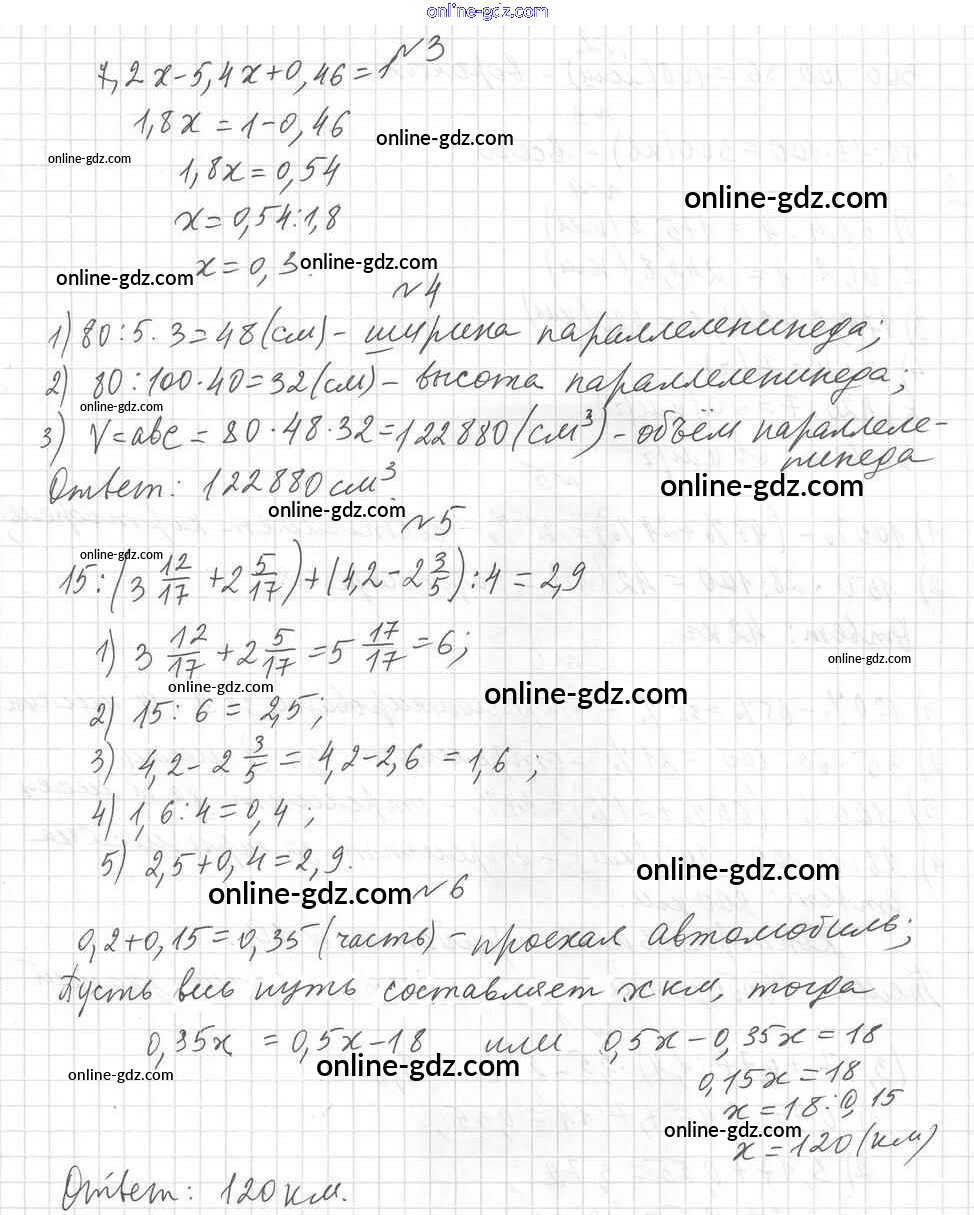 online-gdz.com
№3
7,2x-5,4x+0,46=1
1,8x=1-0,46
online-gdz.com
online-gdz.com
1,8x=0,54
online-gdz.com
x=0,54:1,8
x=0,3.
online-gdz.com
online-gdz.com
№4
1) 80:5·3=48(см)- ширина параллелепипеда;
2) 80:100·40=32(см)- высота параллелепипеда;
online-gdz.com
3) V=abc=80·48·32=122880(см³)-объём параллеле-
пипеда
Ответ: 122880см³.
online-gdz.com
online-gdz.com
№5
online-gdz.com
15:(3 12/17+2 5/17)+(4,2-2 3/5):4=2,9
1) 3 12/17+2 5/17=5 17/17=6;
online-gdz.com
online-gdz.com
online-gdz.com
2) 15:6=2,5;
3) 4,2-2 3/5=4,2-2,6=1,6;
4) 1,6:4=0,4;
5) 2,5+0,4=2,9.
online-gdz.com
online-gdz.com
№6
0,2+0,15=0,35(часть)-проехал автомобиль;
Пусть весь путь составляет x км, тогда
0,35x=0,5x-18 или 0,5x-0,35x=18
online-gdz.com
online-gdz.com
0,15x=18
x=18:0,15
online-gdz.com
x=120(км)
Ответ: 120км.